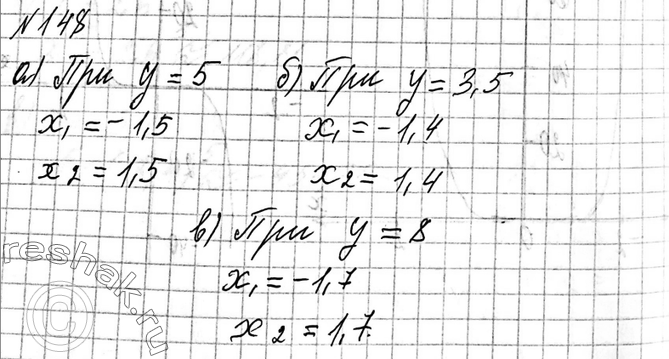 №148
а) При y = 5
x₁ = -1,5
x₂ = 1,5
б) При y = 3,5
x₁ = -1,4
x₂ = 1,4
в) При y = 8
x₁ = -1,7
x₂ = 1,7.
reshak.ru
©